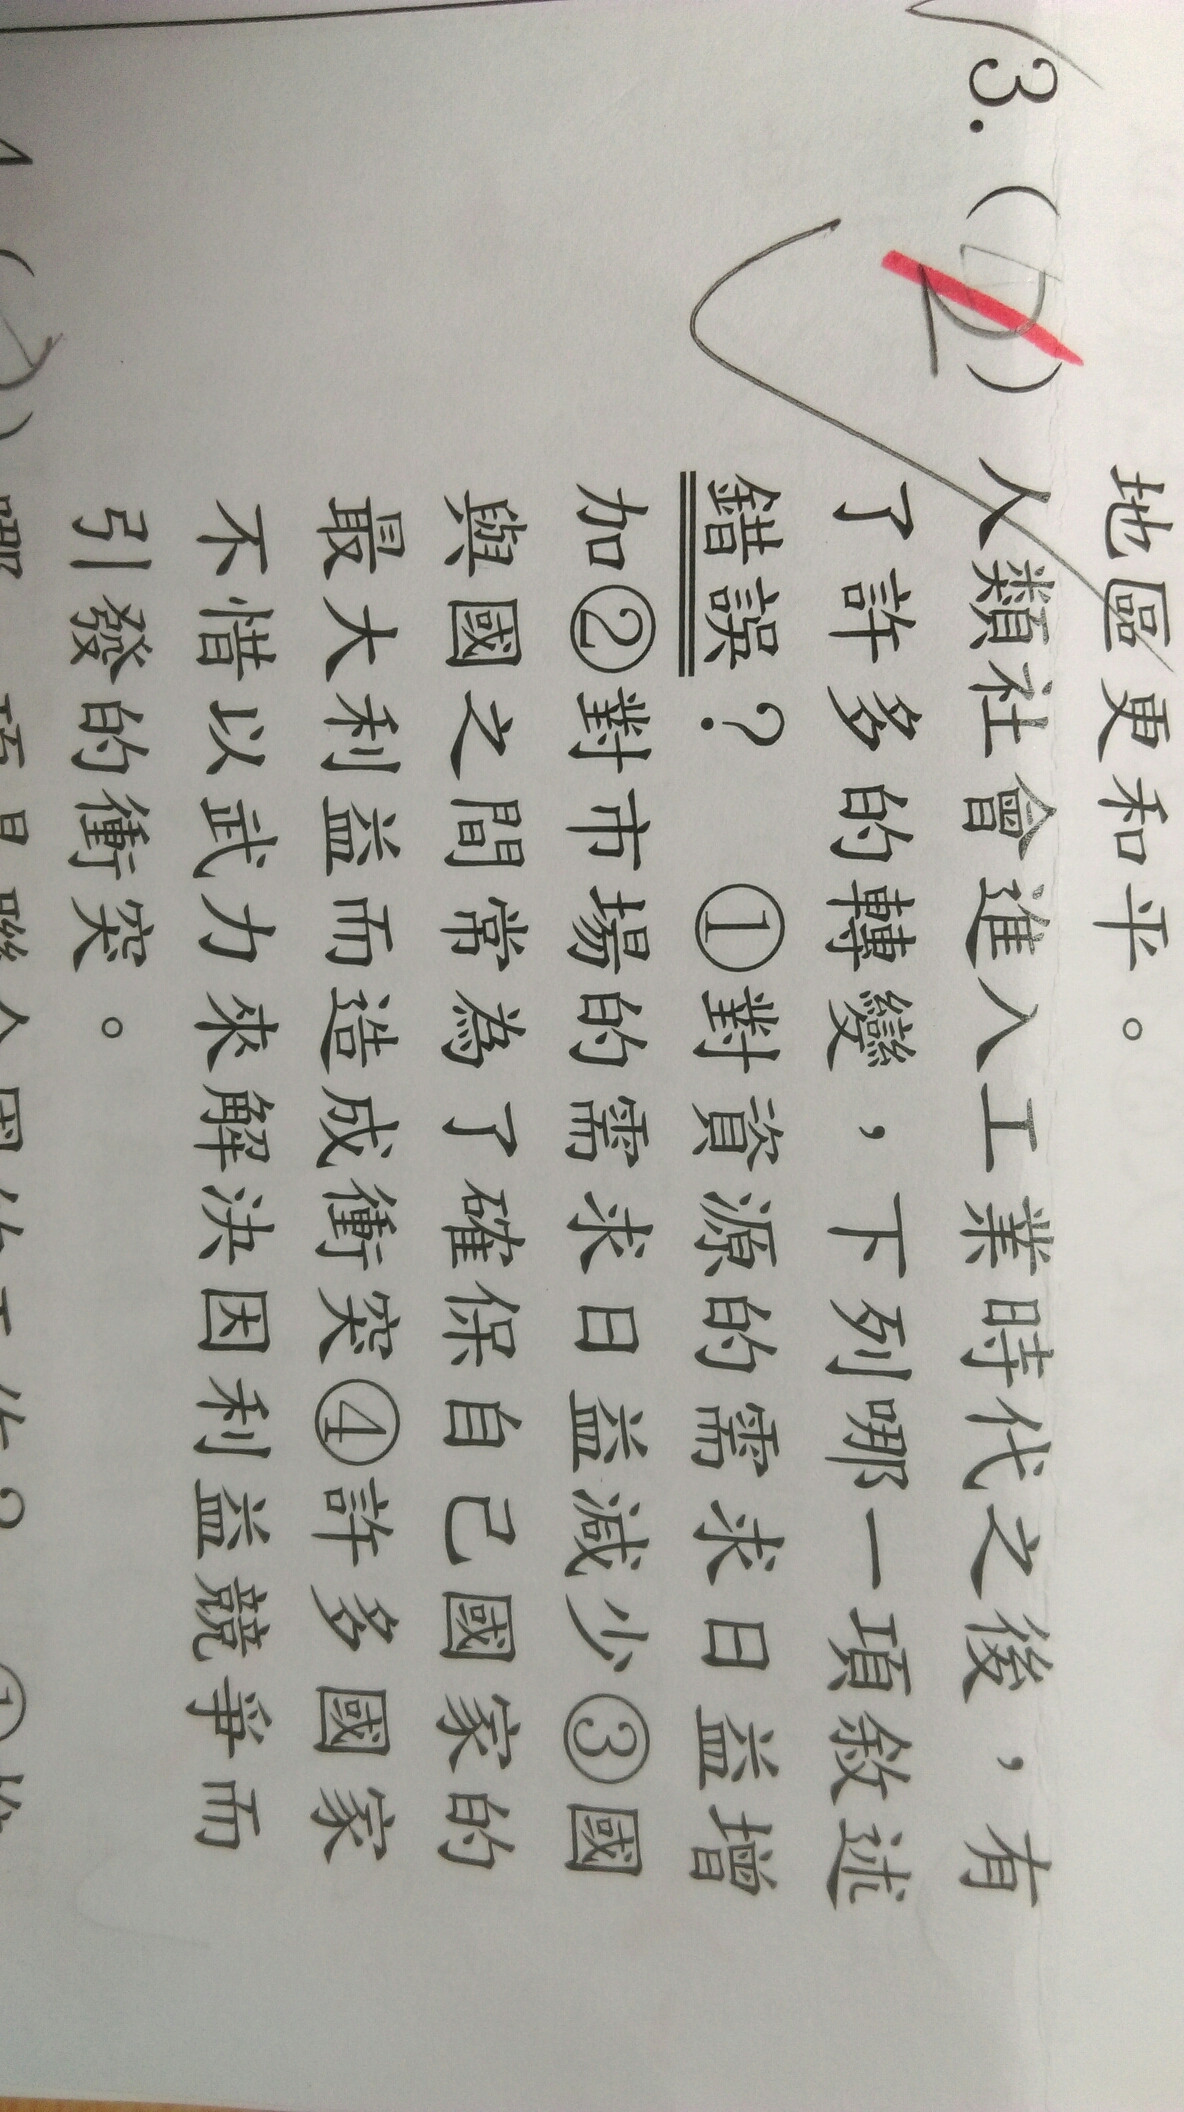 地區更和平。
3.(D) 人類社會進入工業時代之後，有
2
了許多的轉變，下列哪一項敘述
錯誤？ ①對資源的需求日益增
加②對市場的需求日益減少③國
與國之間常為了確保自己國家的
最大利益而造成衝突④許多國家
不惜以武力來解決因利益競爭而
引發的衝突。